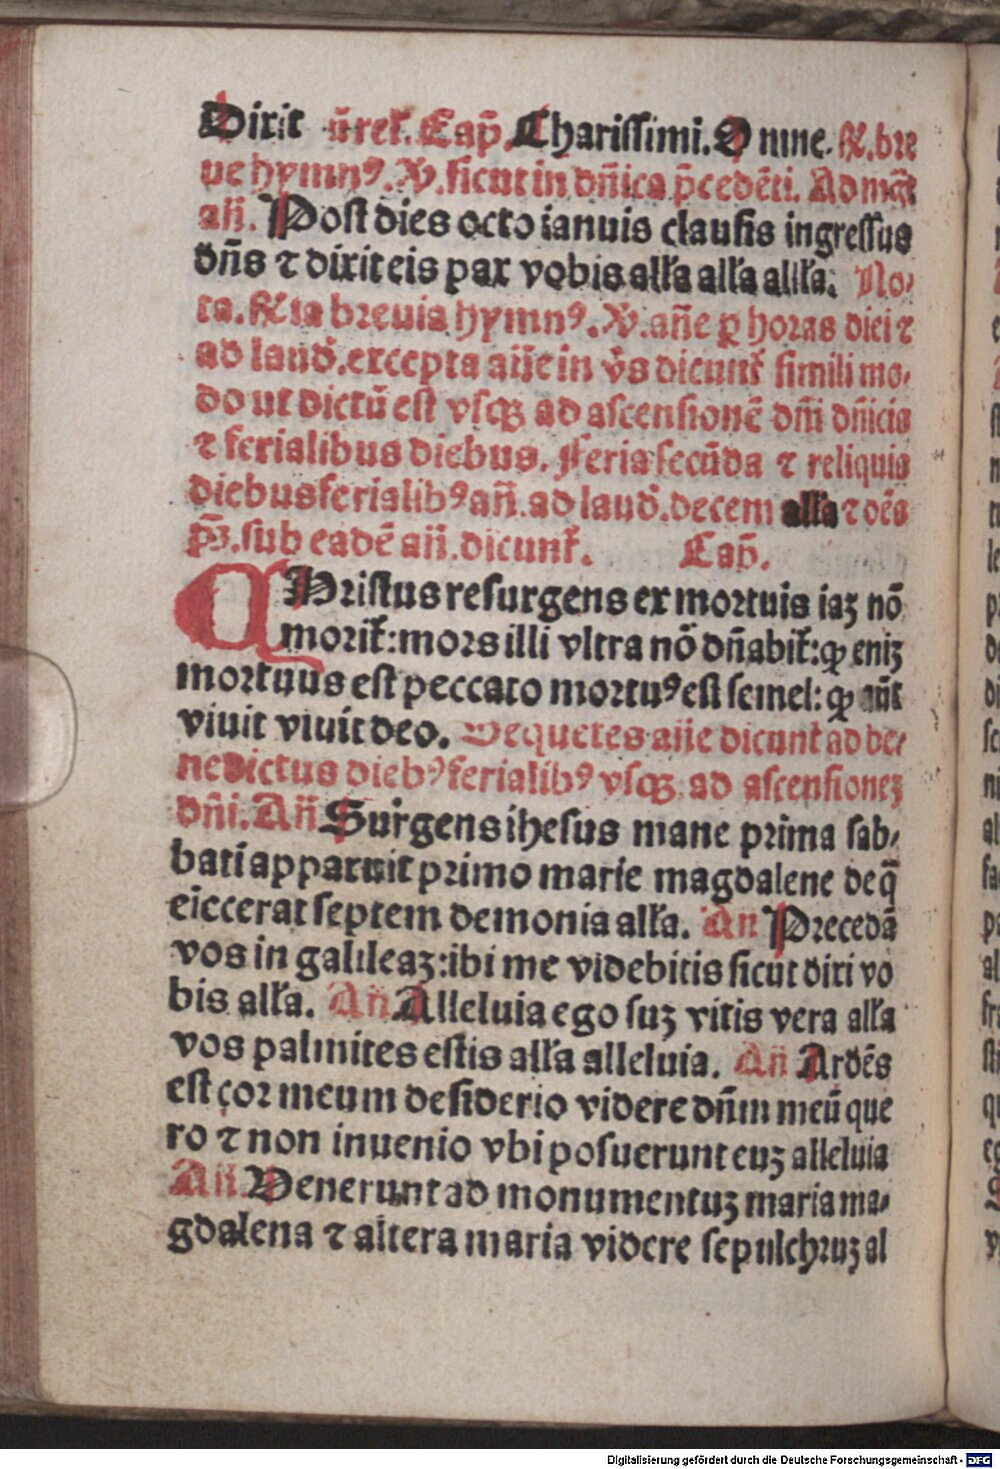 Dixit v̄reſ. Cap̄. Chariſſimi. Omne. ꝶ. bre
ue hymnꝰ. ℣. ſicut in dn̄ica p̄cedēti. Ad mḡt
an̄. Poſt dies octo ianuis clauſis ingreſſus
dn̄s ⁊ dixit eis pax vobis alła alła allła. No⸗
ta. ꝶia breuia hymnꝰ. ℣. an̄e ꝑ horas diei ⁊
ad laud̄. excepta an̄e in v̄s dicunt᷑ ſimili mo⸗
do ut dictū eſt vſqꝫ ad aſcenſionē dn̄i dn̄icis
⁊ ferialibus diebus. Feria ſecūda ⁊ reliquis
diebus ferialibꝰ an̄. ad laud̄. decem alła ⁊ oēs
pꝫ̄. ſub eadē an̄. dicunt᷑. Cap̄.
CHriſtus reſurgens ex mortuis iaꝫ nō
morit᷑: mors illi vltra nō dn̄abit᷑: ꝙ eniꝫ
mortuus eſt peccato mortuꝰ eſt ſemel: ꝙ aūt
viuit viuit deo. Sequetes an̄e dicunt ad be⸗
nedictus diebꝰ ferialibꝰ vſqꝫ ad aſcenſioneꝫ
dn̄i. An̄ Surgens iheſus mane prima ſab⸗
bati apparuit primo marie magdalene de q̄
eiecerat ſeptem demonia alła. An Precedā
vos in galileaꝫ: ibi me videbitis ſicut dixi vo
bis alła. An̄ Alleluia ego ſuꝫ vitis vera alła
vos palmites eſtis alła alleluia. An̄ Ardēs
eſt cor meum deſiderio videre dn̄m meū que
ro ⁊ non inuenio vbi poſuerunt euꝫ alleluia
An̄. Venerunt ad monumentuꝫ maria ma⸗
gdalena ⁊ altera maria videre ſepulchruꝫ al
Digitalisierung gefördert durch die Deutsche Forschungsgemeinschaft - DFG